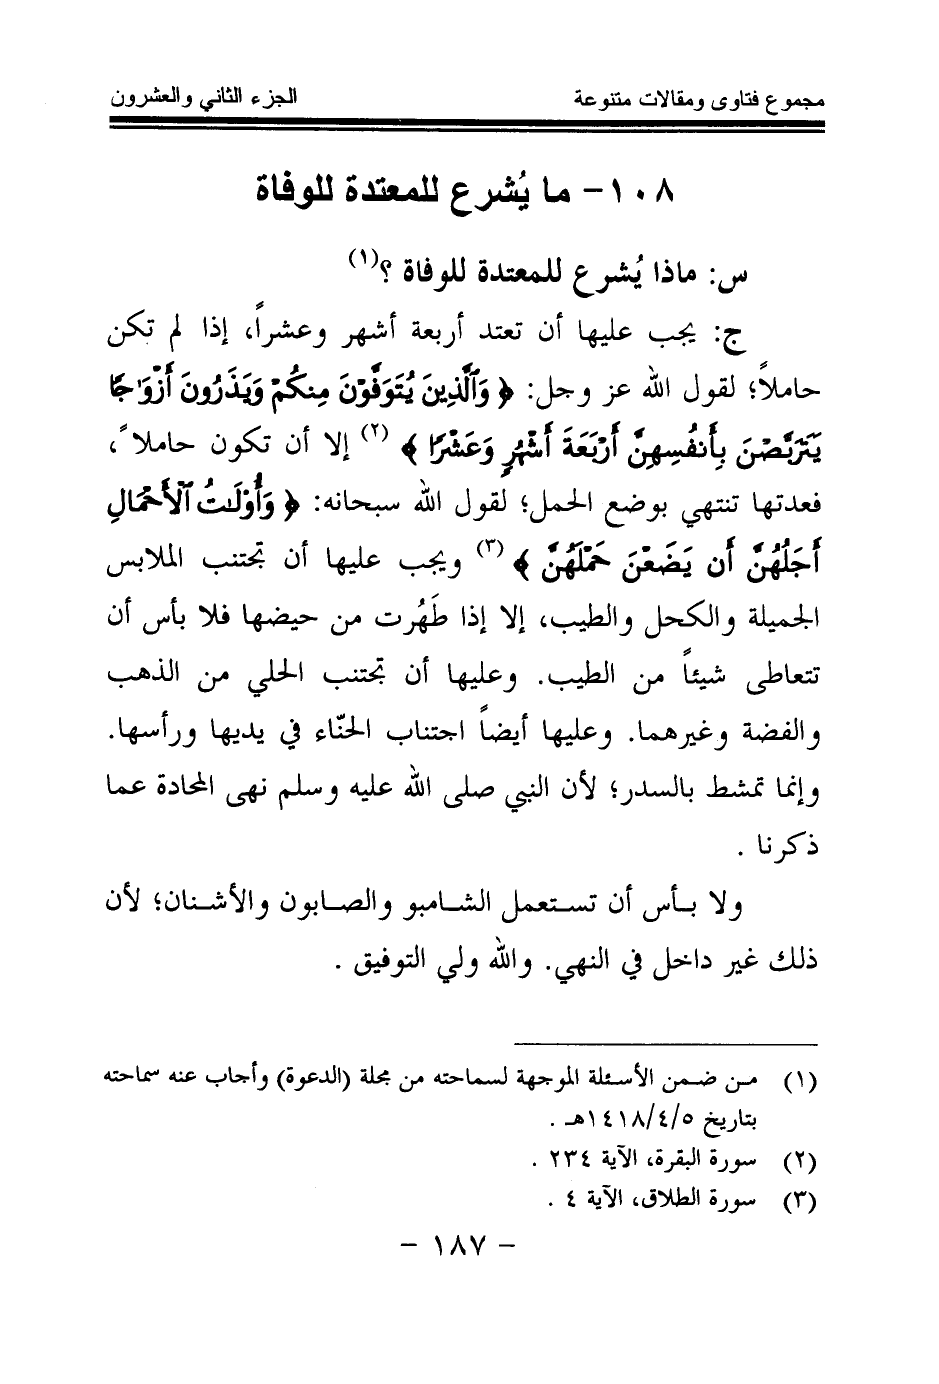 مجموع فتاوى ومقالات متنوعة الجزء الثاني والعشرون
١٠٨- ما يُشرع للمعتدة للوفاة
س: ماذا يُشرع للمعتدة للوفاة ؟(١)
ج: يجب عليها أن تعتد أربعة أشهر وعشراً، إذا لم تكن
حاملاً؛ لقول الله عز وجل: ﴿ وَٱلَّذِينَ يُتَوَفَّوْنَ مِنكُمْ وَيَذَرُونَ أَزْوَٰجًا
يَتَرَبَّصْنَ بِأَنفُسِهِنَّ أَرْبَعَةَ أَشْهُرٍ وَعَشْرًا ﴾ (٢) إلا أن تكون حاملاً ،
فعدتها تنتهي بوضع الحمل؛ لقول الله سبحانه: ﴿ وَأُوْلَٰتُ ٱلْأَحْمَالِ
أَجَلُهُنَّ أَن يَضَعْنَ حَمْلَهُنَّ ﴾ (٣) ويجب عليها أن تجتنب الملابس
الجميلة والكحل والطيب، إلا إذا طَهُرت من حيضها فلا بأس أن
تتعاطى شيئاً من الطيب. وعليها أن تجتنب الحلي من الذهب
والفضة وغيرهما. وعليها أيضاً اجتناب الحنّاء في يديها ورأسها.
وإنما تمشط بالسدر؛ لأن النبي صلى الله عليه وسلم نهى المحادة عما
ذكرنا .
ولا بـأس أن تستعمل الشـامبو والصـابون والأشـنان؛ لأن
ذلك غير داخل في النهي. والله ولي التوفيق .
(١) مـن ضـمن الأسـئلة الموجهة لسماحته من مجلة (الدعوة) وأجاب عنه سماحته
بتاريخ ١٤١٨/٤/٥هـ .
(٢) سورة البقرة، الآية ٢٣٤ .
(٣) سورة الطلاق، الآية ٤ .
- ١٨٧ -